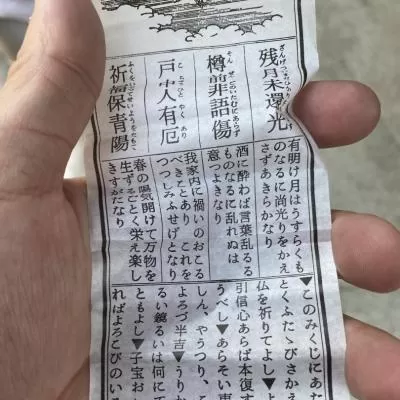 残月未還光
樽前非語傷
戸中人有厄
祈福保青陽
有明け月はうすらくも
のなるに尚光りをかえ
さずあきらかなり
酒に酔わば言葉乱るる
ものなるに乱れぬは
意つよきなり
我家内に禍いのおこる
べきことあり これを
つつしみふせげとなり
春の陽気開けて万物を
生ずるごとく栄え楽し
きすがたなり
▼このみくじにあた
とくふたゝびさかえ
仏を祈りてよし▼
引信心あらば本復す
うべし▼あらそい事
しん、やうつり、こ
よろづ半吉▼うりか
るい鏡るいは何にて
ともよし▼子宝お
ればよろこびのいろ